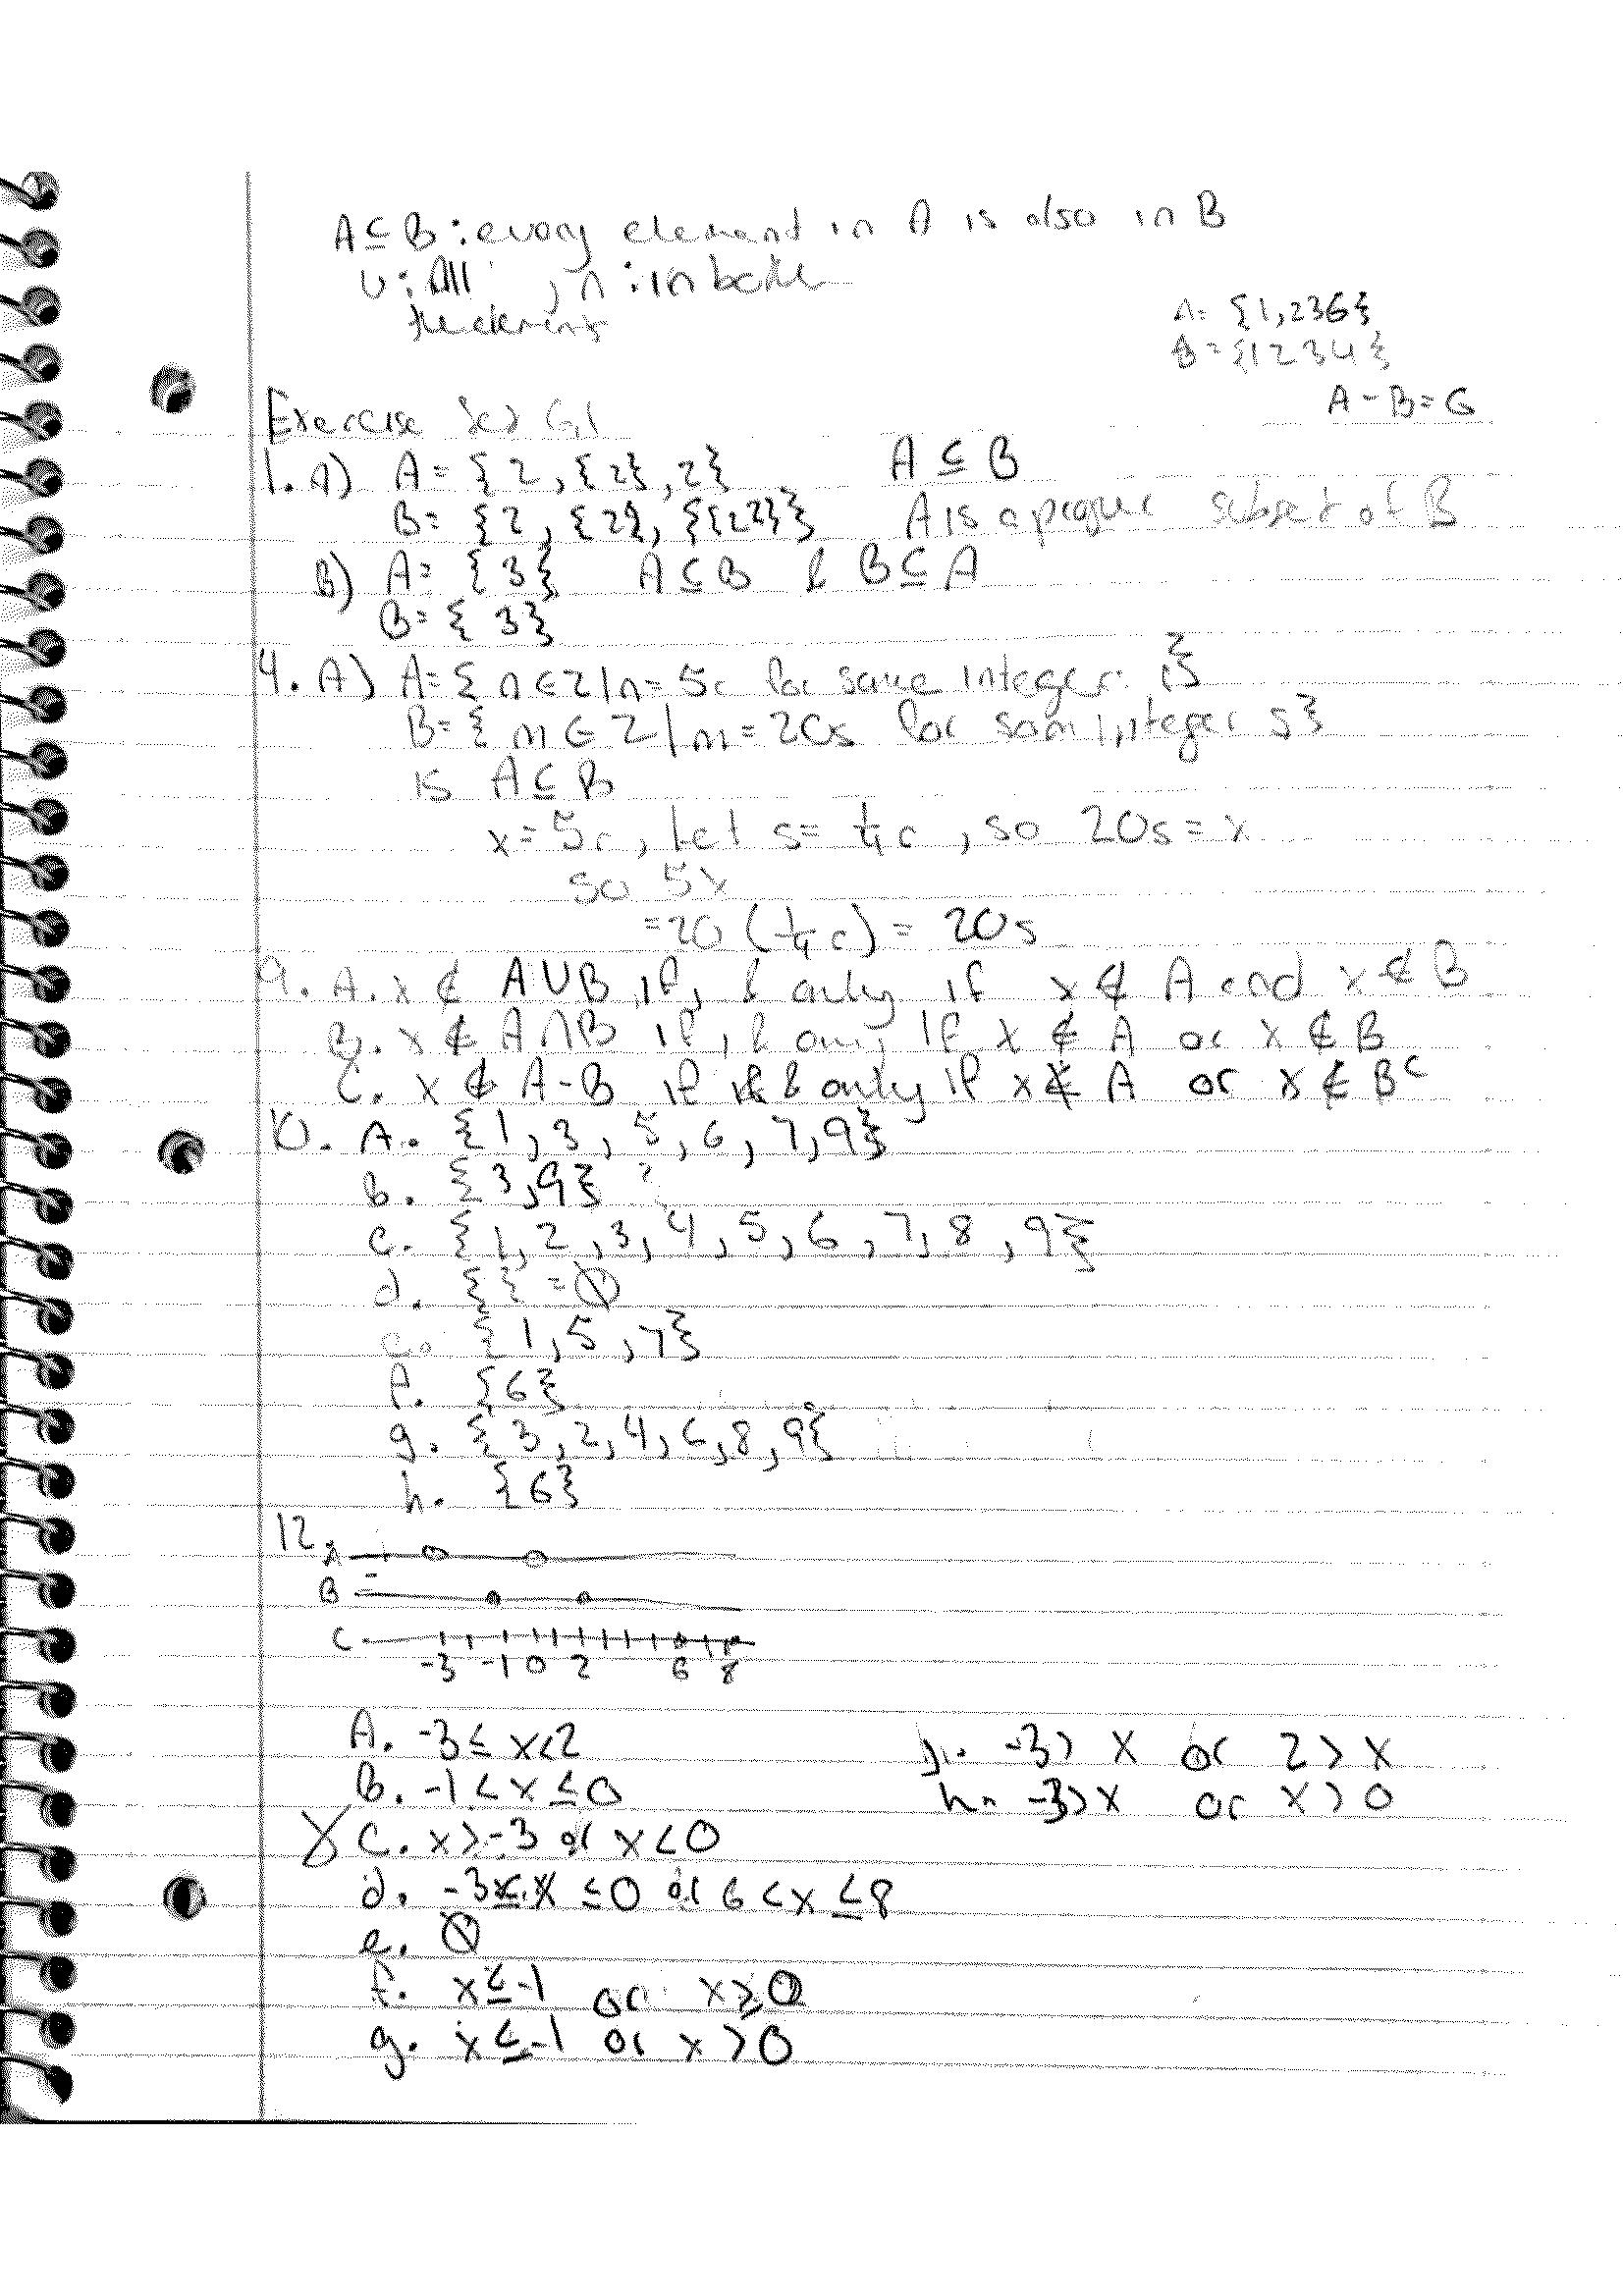 A ⊆ B : every element in A is also in B
∪ : All , ∩ : in both
the elements
A = {1,236}
B = {1234}
A - B = 6
Exercise Set 6.1
1. A) A = {2, {2}, 2} A ⊆ B
B = {2, {2}, {{2}}} A is a proper subset of B
B) A = {3} A ⊆ B & B ⊆ A
B = {3}
4. A) A = {n ∈ Z | n = 5r for some integer r}
B = {m ∈ Z | m = 20s for som integer s}
is A ⊆ B
x = 5r, Let s = 1/4 r, so 20s = x
so 5x
= 20 (1/4 r) = 20s
9. A. x ∉ A ∪ B if, & only if x ∉ A and x ∉ B
B. x ∉ A ∩ B if, & only if x ∉ A or x ∉ B
C. x ∉ A - B if & only if x ∉ A or x ∉ Bᶜ
10. A. {1, 3, 5, 6, 7, 9}
b. {3, 9}
c. {1, 2, 3, 4, 5, 6, 7, 8, 9}
d. { } = ∅
e. {1, 5, 7}
f. {6}
g. {3, 2, 4, 6, 8, 9}
h. {6}
12. A
B
C
-3 -1 0 2 6 8
A. -3 ≤ x < 2
B. -1 < x ≤ 0
C. x > -3 or x < 0
d. -3 ≤ x ≤ 0 or 6 < x ≤ 8
e. ∅
f. x ≤ -1 or x ≥ 0
g. x ≤ -1 or x > 0
-3 > x or 2 > x
h. -3 > x or x > 0